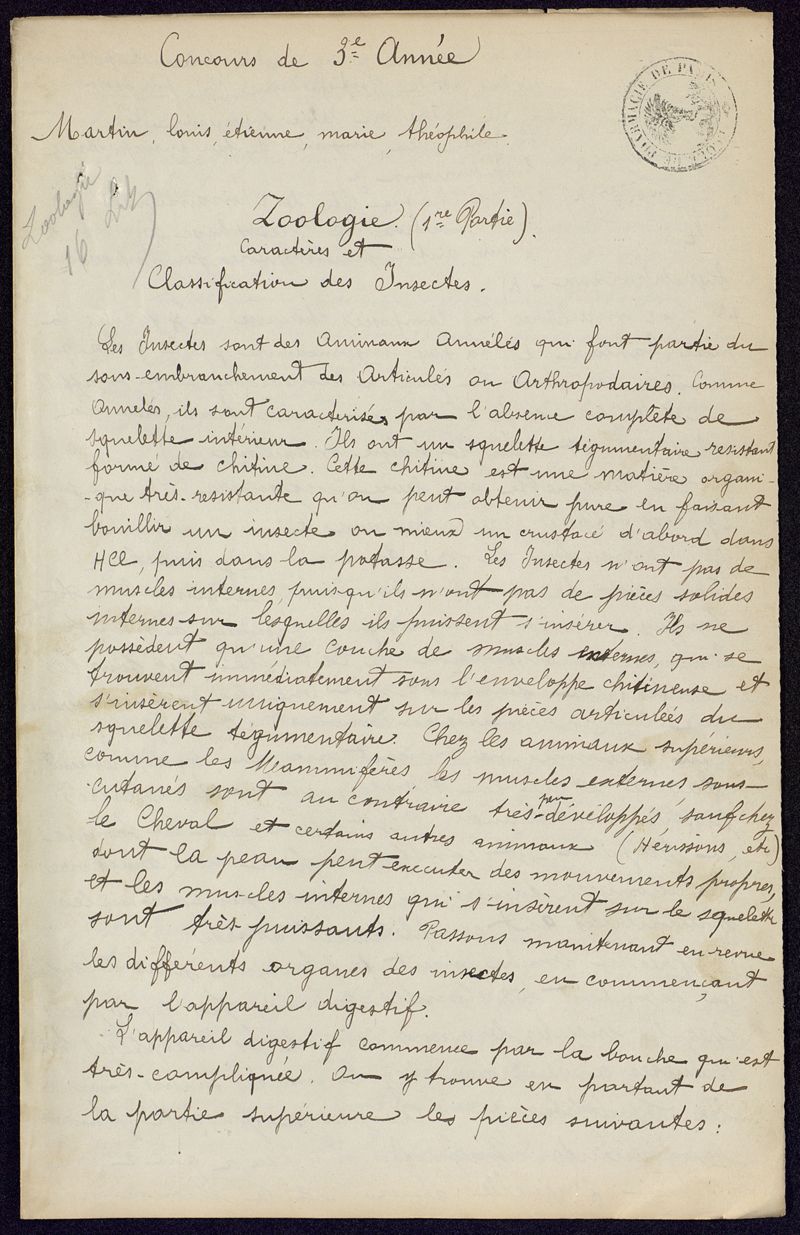 Concours de 3e Année
ÉCOLE DE PHARMACIE DE PARIS
Martin, louis, étienne, marie, théophile.
Zoologie
16
Zoologie. (1re Partie).
Caractères et
Classification des Insectes.
Les Insectes sont des Animaux Annelés qui font partie du
sous-embranchement des Articulés ou Arthropodaires. Comme
Annelés, ils sont caractérisés par l'absence complète de
squelette intérieur. Ils ont un squelette tégumentaire resistant
formé de chitine. Cette chitine est une matière organi-
-que très-resistante qu'on peut obtenir pure en faisant
bouillir un insecte ou mieux un crustacé d'abord dans
HCl, puis dans la potasse. Les Insectes n'ont pas de
muscles internes, puisqu'ils n'ont pas de pièces solides
internes sur lesquelles ils puissent s'insérer. Ils ne
possèdent qu'une couche de muscles externes, qui se
trouvent immédiatement sous l'enveloppe chitineuse et
s'insèrent uniquement sur les pièces articulées du
squelette tégumentaire. Chez les animaux supérieurs,
comme les Mammifères les muscles externes, sous-
-cutanés sont au contraire très-peu développés, sauf chez
le Cheval et certains autres animaux (Hérissons, etc)
dont la peau peut executer des mouvements propres,
et les muscles internes qui s'insèrent sur le squelette
sont très puissants. Passons maintenant en revue
les différents organes des insectes, en commençant
par l'appareil digestif.
L'appareil digestif commence par la bouche qui est
très-compliquée. On y trouve en partant de
la partie supérieure les pièces suivantes :